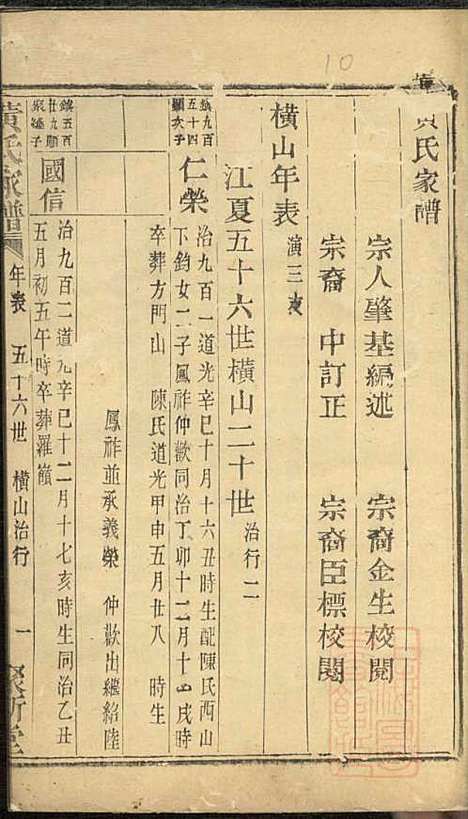 10
黃氏家譜
宗人肇基編述 宗裔金生校閱
宗裔 中訂正 宗裔臣標校閱
橫山年表 演三支
江夏五十六世橫山二十世 治行二
鎮九百五十四顯次子
仁榮
治九百一道光辛巳十月十六丑時生配陳氏西山
下鈞女二子鳳祚仲歡同治丁卯十二月十四戌時
卒葬方門山 陳氏道光甲申五月廿八 時生
鳳祚並承義榮 仲歡出繼紹陸
鎮五百廿九順
國信
治九百二道光辛巳十二月十七亥時生同治乙丑
五月初五午時卒葬羅嶺
黃氏家譜 年表 五十六世 橫山治行 一